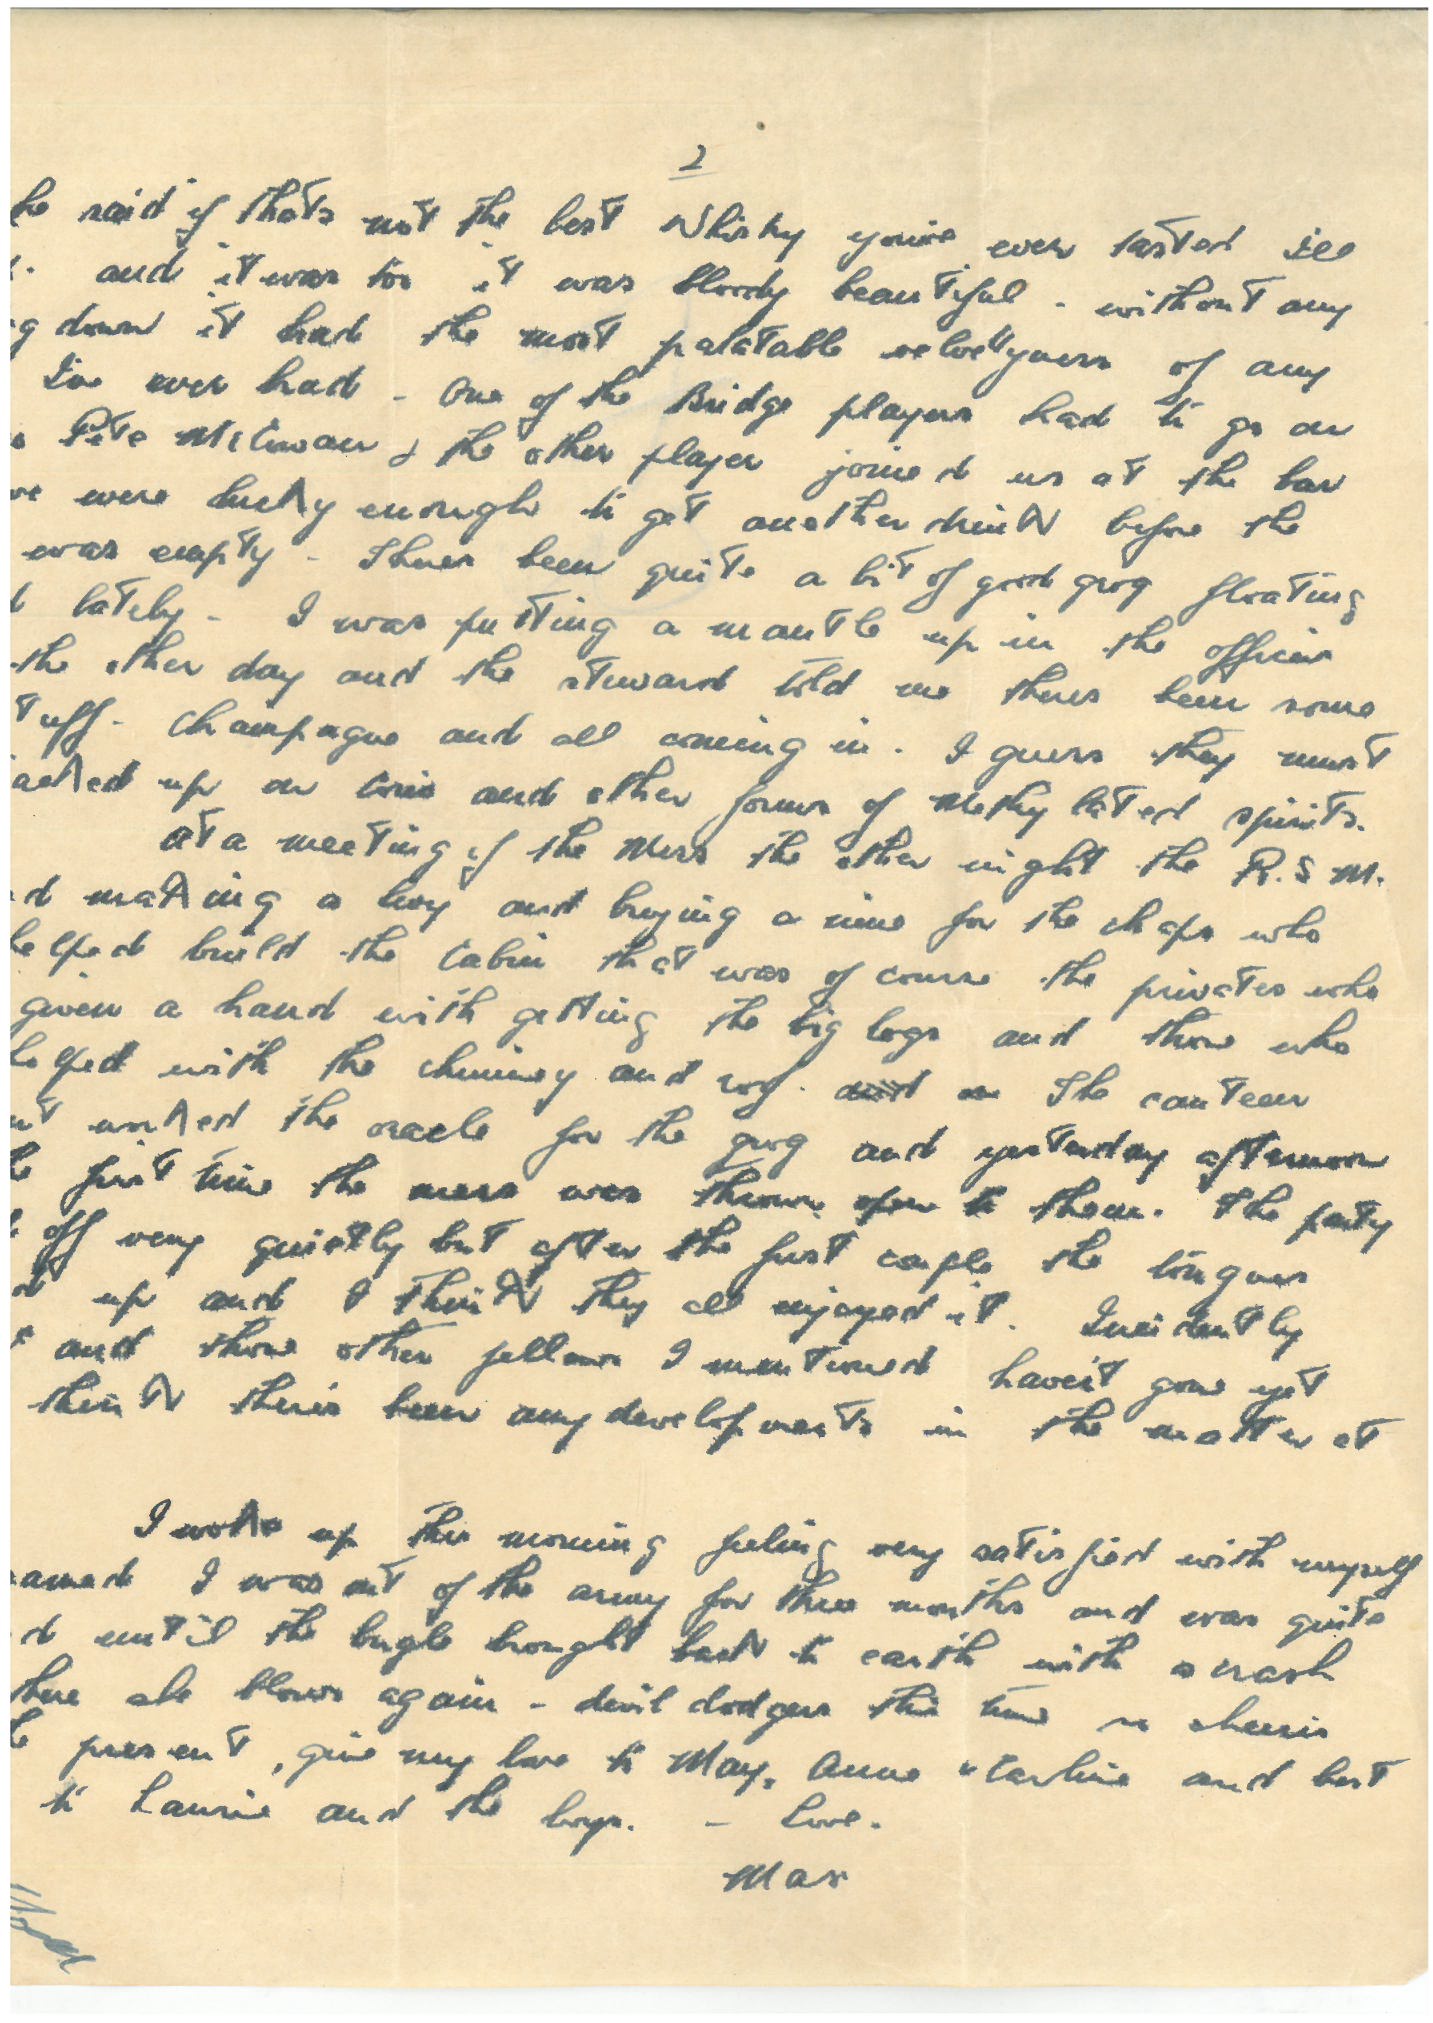 2
he said if thats not the best Whisky youve ever tasted Ill
and it was too it was bloody beautiful - without any
g down it had the most palatable velvetyness of any
Ive ever had - One of the Bridge players had to go on
Pete McEwan & the other player joined us at the bar
we were lucky enough to get another drink before the
was empty - Theres been quite a bit of good grog floating
d lately - I was putting a mantle up in the officers
the other day and the steward told me theres been some
tuff - Champagne and all coming in. I guess they must
acked up on and other forms of Methylated spirits.
At a meeting of the Mess the other night the R.S.M.
d making a levy and buying a nine for the chaps who
helped build the Cabin that was of course the privates who
given a hand with getting the big logs and those who
helped with the chimney and roof. The canteen
nt worked the oracle for the grog and yesterday afternoon
he first time the mess was thrown open to them. The party
d off very quietly but after the first couple the tongues
d up and I think they all enjoyed it. Incidently
t and those other fellows I mentioned havent gone yet
think theres been any developments in the matter at
I woke up this morning feeling very satisfied with myself
eamed I was out of the army for three months and was quite
d until the bugle brought back to earth with a crash
there she blows again - devil dodgers this time so cheerio
he present, give my love to May, Anne & Carline and best
to Laurie and the boys. - Love.
Max